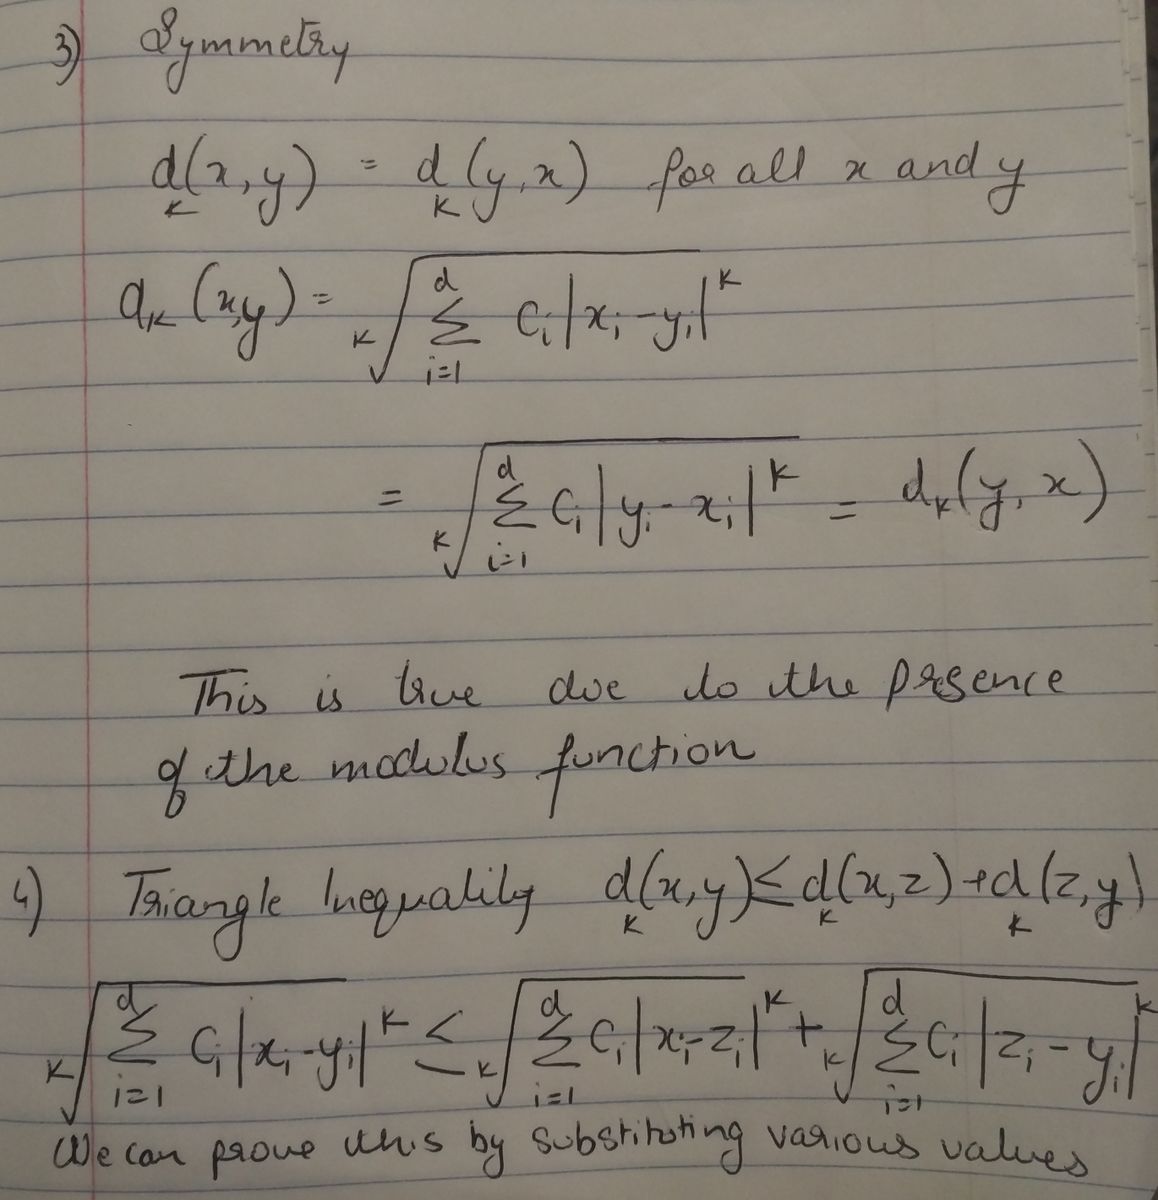 3) Symmetry
d_k(x,y) = d_k(y,x) for all x and y
d_k(x,y) = \sqrt[k]{\sum_{i=1}^{d} c_i |x_i - y_i|^k}
= \sqrt[k]{\sum_{i=1}^{d} c_i |y_i - x_i|^k} = d_k(y,x)
This is true due to the presence
of the modulus function
4) Triangle Inequality d_k(x,y) ≤ d_k(x,z) + d_k(z,y)
\sqrt[k]{\sum_{i=1}^{d} c_i |x_i - y_i|^k} ≤ \sqrt[k]{\sum_{i=1}^{d} c_i |x_i - z_i|^k} + \sqrt[k]{\sum_{i=1}^{d} c_i |z_i - y_i|^k}
We can prove this by substituting various values